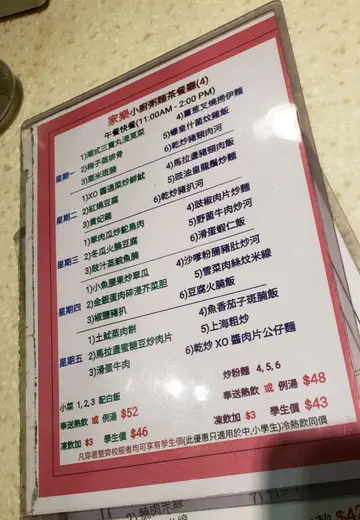 家樂小廚粥麵茶餐廳(4)
午餐快餐(11:00AM - 2:00 PM)
星期一
1)潮式三寶丸浸莧菜
2)梅子蒸排骨
3)粟米斑腩
4)薑葱叉燒撈伊麵
5)蠔皇什菌炆雞飯
6)乾炒豬頸肉河
星期二
1)XO 醬通菜炒鮮魷
2)紅燒豆腐
3)貴妃雞
4)馬拉盞豬頸肉飯
5)豉油皇龍鬚炒麵
6)乾炒豬扒河
星期三
1)翠肉瓜炒鴕鳥肉
2)冬瓜火腩豆腐
3)豉汁蒸鯇魚腩
4)豉椒肉片炒麵
5)野菌牛肉炒河
6)滑蛋蝦仁飯
星期四
1)小魚腰果炒翠瓜
2)金銀蛋肉碎浸芥菜胆
3)椒鹽豬扒
4)沙嗲粉腸豬肚炒河
5)雪菜肉絲炆米線
6)豆腐火腩飯
星期五
1)土魷蒸肉餅
2)馬拉盞蜜糖豆炒肉片
3)滑蛋牛肉
4)魚香茄子斑腩飯
5)上海粗炒
6)乾炒 XO 醬肉片公仔麵
小菜 1, 2, 3 配白飯
奉送熱飲 或 例湯 $52
凍飲加 $3 學生價 $46
炒粉麵 4, 5, 6
奉送熱飲 或 例湯 $48
凍飲加 $3 學生價 $43
凡穿著整齊校服者均可享有學生價(此優惠只適用於中,小學生)冷熱飲同價